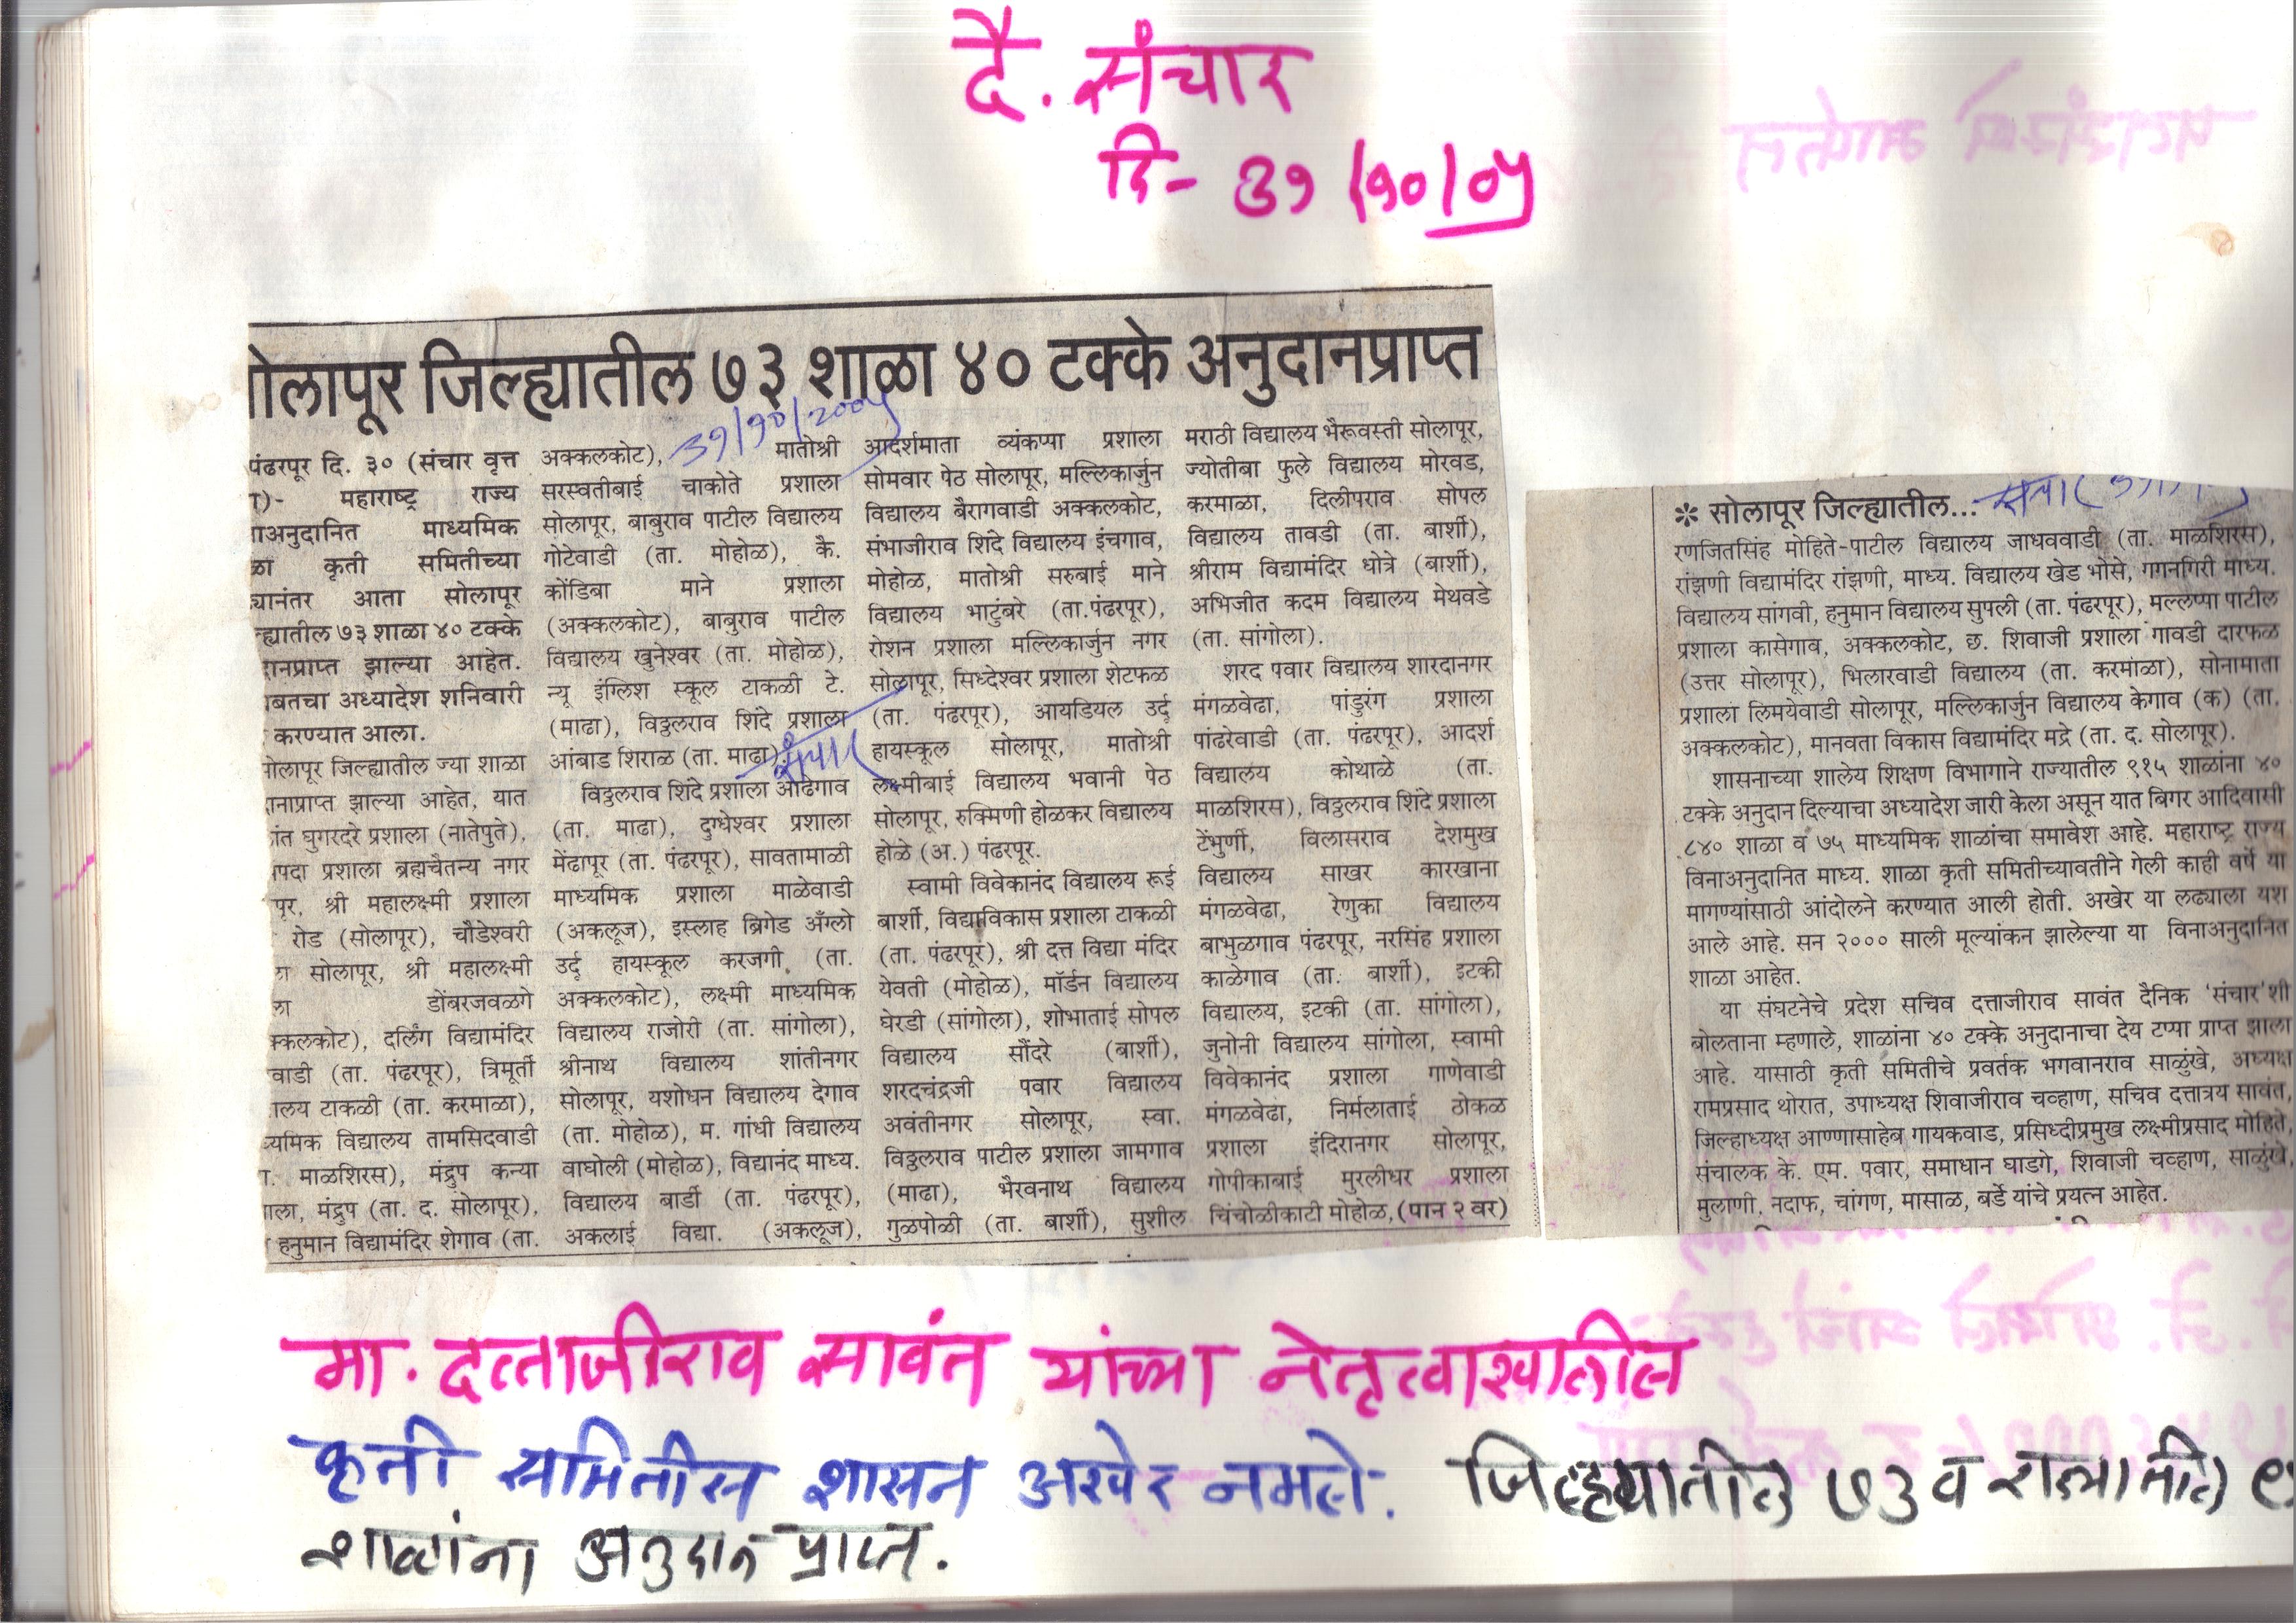 दै. संचार
दि- ३१/१०/०५
ोलापूर जिल्ह्यातील ७३ शाळा ४० टक्के अनुदानप्राप्त
३१/१०/२००५
पंढरपूर दि. ३० (संचार वृत्त
)- महाराष्ट्र राज्य
अनुदानित माध्यमिक
ळा कृती समितीच्या
यानंतर आता सोलापूर
ह्यातील ७३ शाळा ४० टक्के
दानप्राप्त झाल्या आहेत.
ाबतचा अध्यादेश शनिवारी
करण्यात आला.
ोलापूर जिल्ह्यातील ज्या शाळा
दानाप्राप्त झाल्या आहेत, यात
ांत घुगरदरे प्रशाला (नातेपुते),
पदा प्रशाला ब्रह्मचैतन्य नगर
पूर, श्री महालक्ष्मी प्रशाला
रोड (सोलापूर), चौडेश्वरी
सोलापूर, श्री महालक्ष्मी
डोंबरजवळगे
क्कलकोट), दर्लिंग विद्यामंदिर
वाडी (ता. पंढरपूर), त्रिमूर्ती
ालय टाकळी (ता. करमाळा),
ध्यमिक विद्यालय तामसिदवाडी
. माळशिरस), मंद्रुप कन्या
ाला, मंद्रुप (ता. द. सोलापूर),
हनुमान विद्यामंदिर शेगाव (ता.
अक्कलकोट), मातोश्री
सरस्वतीबाई चाकोते प्रशाला
सोलापूर, बाबुराव पाटील विद्यालय
गोटेवाडी (ता. मोहोळ), कै.
कोंडिबा माने प्रशाला
(अक्कलकोट), बाबुराव पाटील
विद्यालय खुनेश्वर (ता. मोहोळ),
न्यू इंग्लिश स्कूल टाकळी टे.
(माढा), विठ्ठलराव शिंदे प्रशाला
आंबाड शिराळ (ता. माढा)
संचार
विठ्ठलराव शिंदे प्रशाला आढेगाव
(ता. माढा), दुग्धेश्वर प्रशाला
मेंढापूर (ता. पंढरपूर), सावतामाळी
माध्यमिक प्रशाला माळेवाडी
(अकलूज), इस्लाह ब्रिगेड अँग्लो
उर्दू हायस्कूल करजगी, (ता.
अक्कलकोट), लक्ष्मी माध्यमिक
विद्यालय राजोरी (ता. सांगोला),
श्रीनाथ विद्यालय शांतीनगर
सोलापूर, यशोधन विद्यालय देगाव
(ता. मोहोळ), म. गांधी विद्यालय
वाघोली (मोहोळ), विद्यानंद माध्य.
विद्यालय बार्डी (ता. पंढरपूर),
अकलाई विद्या. (अकलूज),
आदर्शमाता व्यंकप्पा प्रशाला
सोमवार पेठ सोलापूर, मल्लिकार्जुन
विद्यालय बैरागवाडी अक्कलकोट,
संभाजीराव शिंदे विद्यालय इंचगाव,
मोहोळ, मातोश्री सरुबाई माने
विद्यालय भाटुंबरे (ता.पंढरपूर),
रोशन प्रशाला मल्लिकार्जुन नगर
सोलापूर, सिध्देश्वर प्रशाला शेटफळ
(ता. पंढरपूर), आयडियल उर्दू
हायस्कूल सोलापूर, मातोश्री
लक्ष्मीबाई विद्यालय भवानी पेठ
सोलापूर, रुक्मिणी होळकर विद्यालय
होळे (अ.) पंढरपूर.
स्वामी विवेकानंद विद्यालय रूई
बार्शी, विद्याविकास प्रशाला टाकळी
(ता. पंढरपूर), श्री दत्त विद्या मंदिर
येवती (मोहोळ), मॉर्डन विद्यालय
घेरडी (सांगोला), शोभाताई सोपल
विद्यालय सौंदरे (बार्शी),
शरदचंद्रजी पवार विद्यालय
अवंतीनगर सोलापूर, स्वा.
विठ्ठलराव पाटील प्रशाला जामगाव
(माढा), भैरवनाथ विद्यालय
गुळपोळी (ता. बार्शी), सुशील
मराठी विद्यालय भैरूवस्ती सोलापूर,
ज्योतीबा फुले विद्यालय मोरवड,
करमाळा, दिलीपराव सोपल
विद्यालय तावडी (ता. बार्शी),
श्रीराम विद्यामंदिर धोत्रे (बार्शी),
अभिजीत कदम विद्यालय मेथवडे
(ता. सांगोला).
शरद पवार विद्यालय शारदानगर
मंगळवेढा, पांडुरंग प्रशाला
पांढरेवाडी (ता. पंढरपूर), आदर्श
विद्यालय कोथाळे (ता.
माळशिरस), विठ्ठलराव शिंदे प्रशाला
टेंभुर्णी, विलासराव देशमुख
विद्यालय साखर कारखाना
मंगळवेढा, रेणुका विद्यालय
बाभुळगाव पंढरपूर, नरसिंह प्रशाला
काळेगाव (ता. बार्शी), इटकी
विद्यालय, इटकी (ता. सांगोला),
जुनोनी विद्यालय सांगोला, स्वामी
विवेकानंद प्रशाला गाणेवाडी
मंगळवेढा, निर्मलाताई ठोकळ
प्रशाला इंदिरानगर सोलापूर,
गोपीकाबाई मुरलीधर प्रशाला
चिंचोळीकाटी मोहोळ, (पान २ वर)
✽ सोलापूर जिल्ह्यातील...
रणजितसिंह मोहिते-पाटील विद्यालय जाधववाडी (ता. माळशिरस),
रांझणी विद्यामंदिर रांझणी, माध्य. विद्यालय खेड भोसे, गगनगिरी माध्य.
विद्यालय सांगवी, हनुमान विद्यालय सुपली (ता. पंढरपूर), मल्लप्पा पाटील
प्रशाला कासेगाव, अक्कलकोट, छ. शिवाजी प्रशाला गावडी दारफळ
(उत्तर सोलापूर), भिलारवाडी विद्यालय (ता. करमाळा), सोनामाता
प्रशाला लिमयेवाडी सोलापूर, मल्लिकार्जुन विद्यालय केगाव (क) (ता.
अक्कलकोट), मानवता विकास विद्यामंदिर मद्रे (ता. द. सोलापूर).
शासनाच्या शालेय शिक्षण विभागाने राज्यातील ९१५ शाळांना ४०
टक्के अनुदान दिल्याचा अध्यादेश जारी केला असून यात बिगर आदिवासी
८४० शाळा व ७५ माध्यमिक शाळांचा समावेश आहे. महाराष्ट्र राज्य
विनाअनुदानित माध्य. शाळा कृती समितीच्यावतीने गेली काही वर्षे या
मागण्यांसाठी आंदोलने करण्यात आली होती. अखेर या लढ्याला यश
आले आहे. सन २००० साली मूल्यांकन झालेल्या या विनाअनुदानित
शाळा आहेत.
या संघटनेचे प्रदेश सचिव दत्ताजीराव सावंत दैनिक 'संचार'शी
बोलताना म्हणाले, शाळांना ४० टक्के अनुदानाचा देय टप्पा प्राप्त झाला
आहे. यासाठी कृती समितीचे प्रवर्तक भगवानराव साळुंखे, अध्यक्ष
रामप्रसाद थोरात, उपाध्यक्ष शिवाजीराव चव्हाण, सचिव दत्तात्रय सावंत,
जिल्हाध्यक्ष आण्णासाहेब गायकवाड, प्रसिध्दीप्रमुख लक्ष्मीप्रसाद मोहिते,
संचालक के. एम. पवार, समाधान घाडगे, शिवाजी चव्हाण, साळुंखे,
मुलाणी, नदाफ, चांगण, मासाळ, बर्डे यांचे प्रयत्न आहेत.
मा. दत्ताजीराव सावंत यांच्या नेतृत्वाखालील
कृती समितीस शासन अखेर नमले. जिल्ह्यातील ७३ व राज्यातील ९
शाळांना अनुदान प्राप्त.